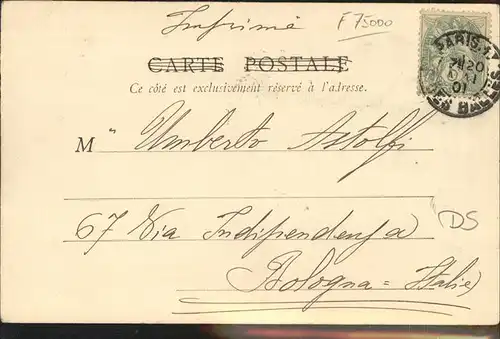 Imprimé
F 75000
CARTE POSTALE
Ce côté est exclusivement réservé à l'adresse.
M Umberto Astolfi
67 Via Indipendenza
DS
Bologna = Italie
PARIS
01